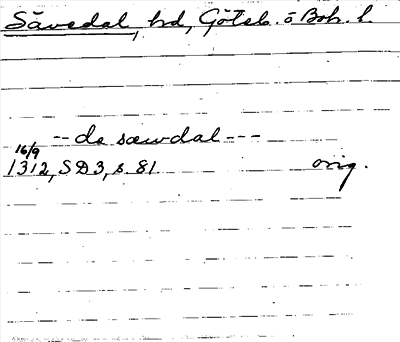 Sävedal, hd, Göteb. o Boh. l.
-- de sæwdal ---
16/9
1312, SD3, s. 81. orig.